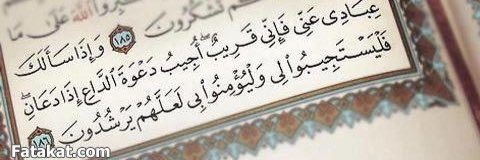 الله عَلَىٰ مَا
تَشْكُرُونَ ١٨٥ وَإِذَا سَأَلَكَ
عِبَادِى عَنِّى فَإِنِّى قَرِيبٌ ۖ أُجِيبُ دَعْوَةَ ٱلدَّاعِ إِذَا دَعَانِ ۖ
فَلْيَسْتَجِيبُوا۟ لِى وَلْيُؤْمِنُوا۟ بِى لَعَلَّهُمْ يَرْشُدُونَ ١٨٦
Fatakat.com